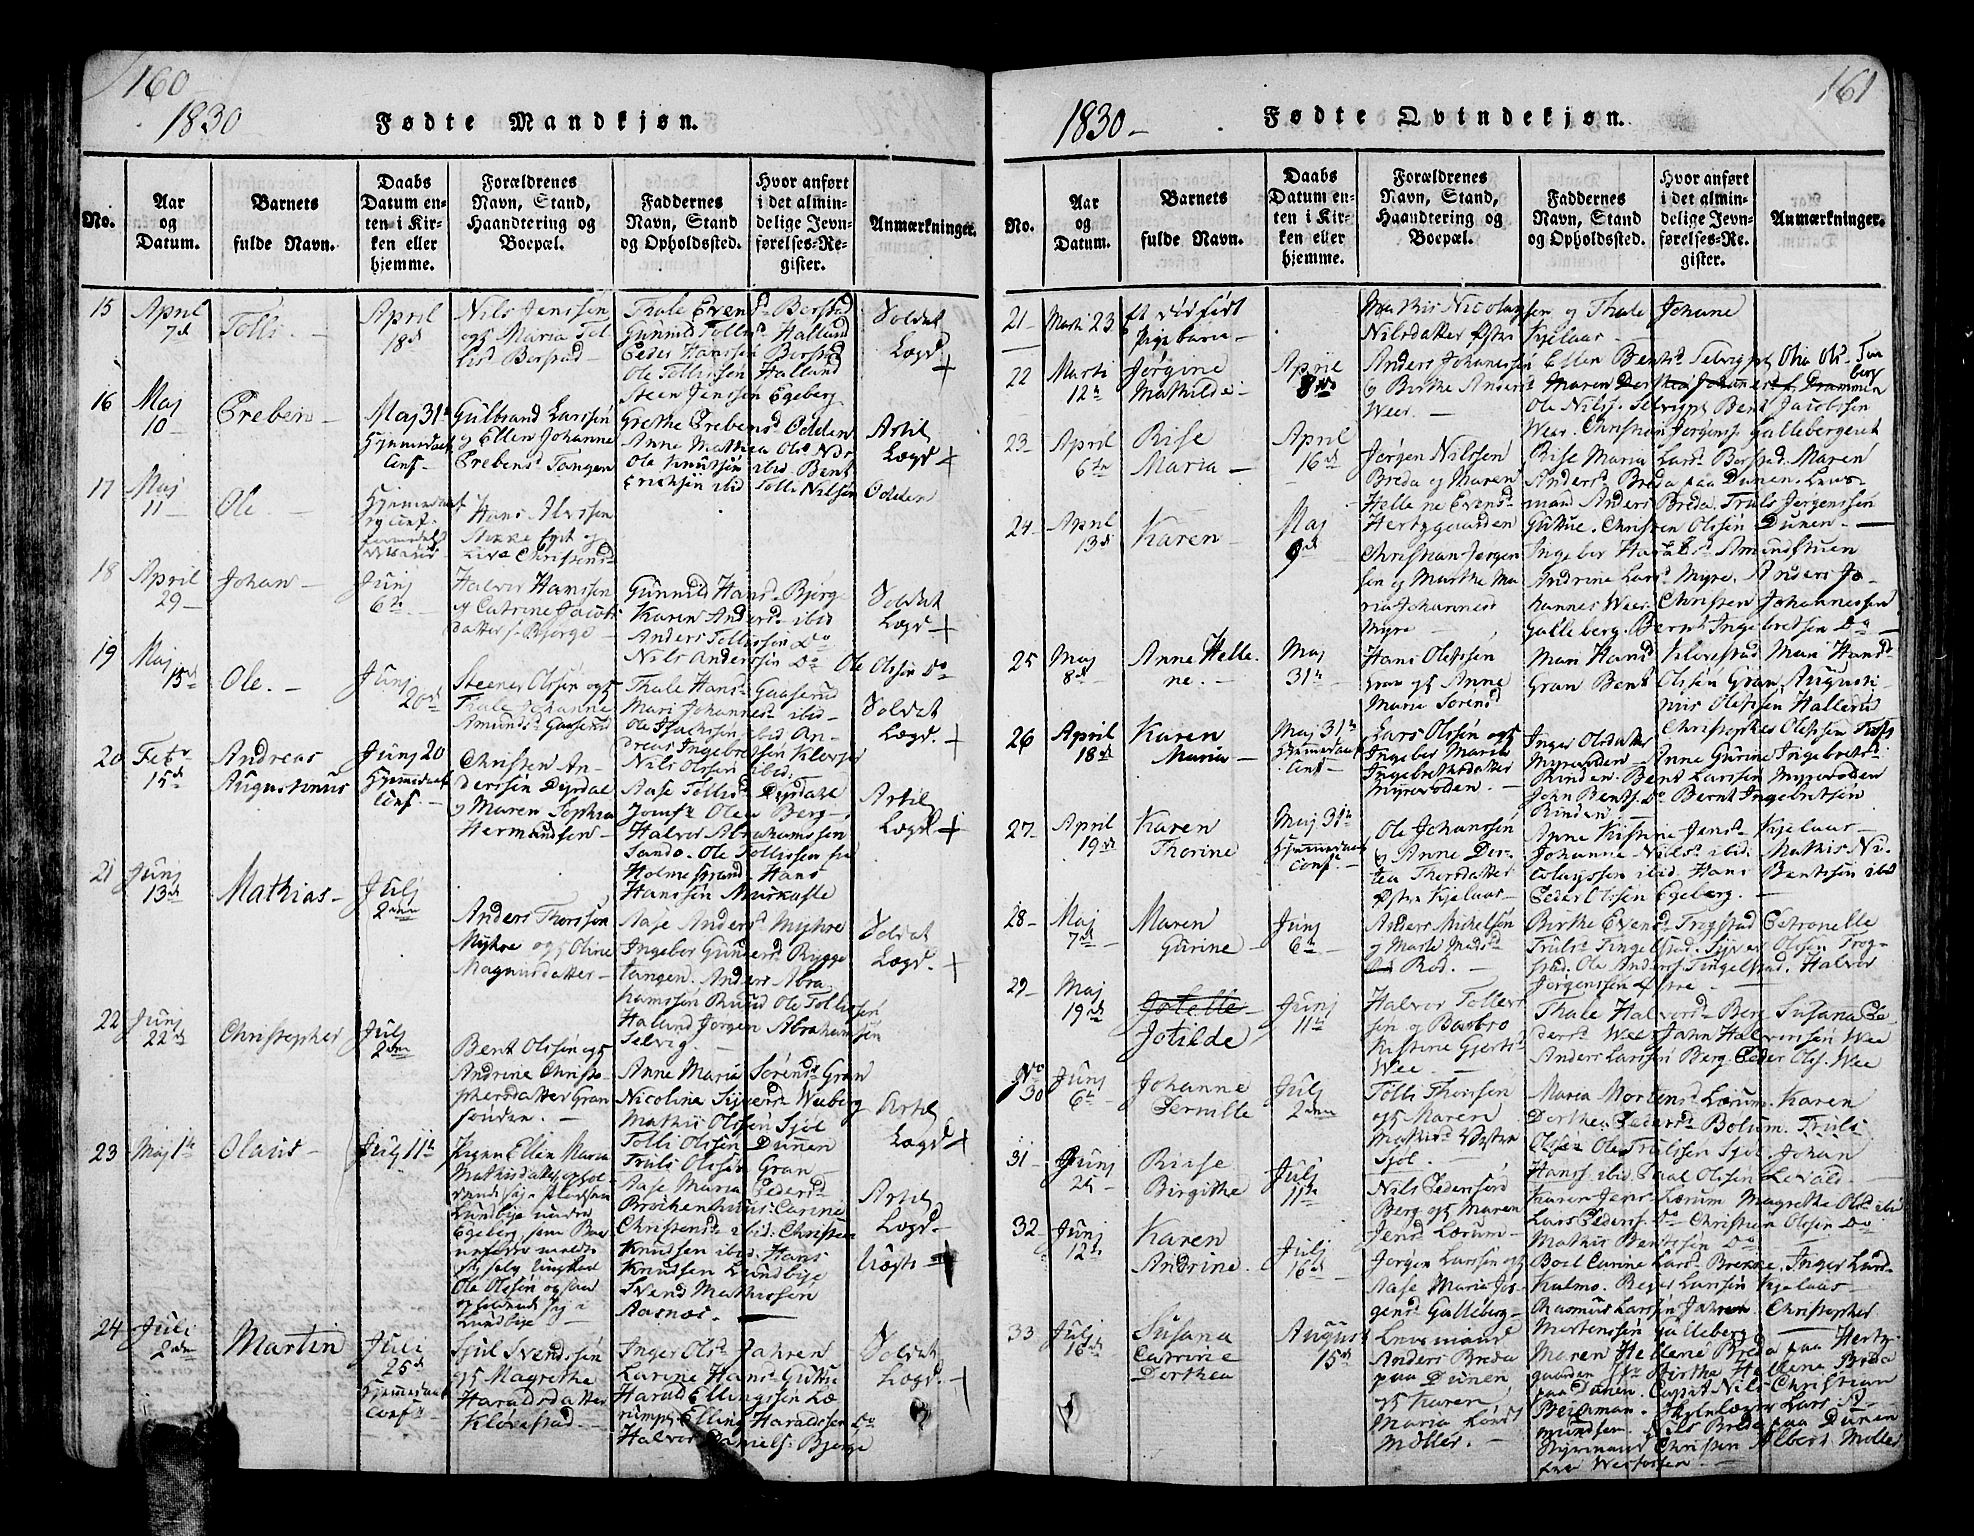 160
1830
Fødte Mandkjøn.
No.
Aar
og
Datum.
Barnets
fulde Navn.
Daabs
Datum en-
ten i Kir-
ken eller
hjemme.
Forældrenes
Navn, Stand,
Haandtering og
Boepæl.
Faddernes
Navn, Stand
og Opholdssted.
Hvor anført
i det almin-
delige Jevn-
førelses-Re-
gister.
Anmærkninger.
15
April
7d
Tolli
April
18d
Nils Jenssen
og Maria Tol
lisd Borstad
Thale Evensd Borstad
Gunnild Tollisd Halland
Peder Hanssen Borstad
Ole Tollissen Halland
Steen Jenssen Egeberg
Soldat
Lægd
16
Maj
10
Preben
Maj 31
Hjemmedøbt
Conf
Gulbrand Larssen
og Ellen Johanne
Prebensd Tangen
Grethe Prebensd Odden
Anne Mathea Olsd
Ole Knutsen ibid Bent
Ericksen ibid Tolli Nilsen Odden
Artil
Lægd
17
Maj
11
Ole
Hjemmedøbt
Hans
18
April
29
Johan
Junj
6te
Halvor Hanssen
og Catrine Jacobs
datter Bjerge
Gunnild Hansd Bjerge
Karen Andersd ibid
Anders Tollissen Do
Nils Anderssen Do Ole Olssen Do
Soldat
Lægd
19
Maj
15d
Ole
Junj
20d
Steener Olssen og
Thale Johanne
Amundsd Gaaserud
Thale Hansd Gaaserud
Mari Johannesd ibid
Ole Isachssen ibid An-
dreas Ingebretsen
Nils Olssen ibid
Soldat
Lægd
20
Febr
15d
Andreas
Augustinus
Junj 20
Hjemmedøbt
Conf
Christen An-
derssen Dyrdal
og Maren Sophia
Hermandsen
Aase Tollisd Dyrdal
Jomfr Olea Berg
Halvor Abrahamssen
Sando. Ole Tollissen fra
Holmestrand. Hans
Hanssen Murkaste
Artil
Lægd
21
Junj
13d
Mathias
Julj
2den
Anders Thorssen
Myhre og Oline
Magnusdatter
Aase Andersd Myhre
Ingebor Gundersd Bygge
tangen. Anders Abra
hamssen Ruud Ole Tollissen
Halland Jørgen Abrahamsen
Selvig
Soldat
Lægd
22
Junj
22d
Christopher
Julj
2den
Bent Olssen og
Andrine Christo-
phersdatter Gran
Anne Maria Sørensd Gran
Nicoline Syversd Weeberg
Mathis Olssen Sjøl
Tolli Olssen Dunen
Truls Olssen Gran
Artil
Lægd
23
Maj 1te
Olaus
Julj 11te
Pigen Ellen Maria
Mathisdatter
Lundbye under
Egeberg, som Bar
Ole Olssen og
Lundbye
Aase Maria Pedersd
Christensd ibid. Christen
Knudsen ibid. Hans
Knudsen Lundbye
Svend Mathissen
Aasnæs
Artil
Lægd
24
Juli
2den
Martin
Juli
25d
Hjemmedøbt
Conf
Sjul Svendssen
og Magrethe
Haraldsdatter
Kløvestad
Inger Olsd Jahren
Larine Hansd Gutue
Harald Ellingssen Læ
rum, Elling Haraldssen Do
Halvor Daniels: Bjerge
Soldat
Lægd
161
1830
Fødte Qvindekjøn.
No.
Aar
og
Datum.
Barnets
fulde Navn.
Daabs
Datum en-
ten i Kir-
ken eller
hjemme.
Forældrenes
Navn, Stand,
Haandtering og
Boepæl.
Faddernes
Navn, Stand
og Opholdssted.
Hvor anført
i det almin-
delige Jevn-
førelses-Re-
gister.
Anmærkninger.
21
Marti 23
Et dødfødt
Pigebarn
Mathis Nicolay
sen og Thale Johane
Nilsdatter Østre Kjelaas
22
Marti
12te
Jørgine
Mathilde
April
8de
Anders Johanessen
og Birthe Andersd
Weer
Ellen Bentsd Selvig Olia Olsd
Ole Nilss. Selvig Bent Jacobssen
Weer. Christian Jørgenss. Galleberg
23
April
6te
Rise
Maria
April
16d
Jørgen Nilssen
Breda og Maren
Hellene Evensd
Hertzgaarden
Rise Maria Larsd Borstad. Maren
Andersd Breda paa Dunen. Lens-
mand Anders Breda. Truls Jørgenssen
Gutue. Christen Olssen Dunen
24
April
13d
Karen
Maj
9d
Christian Jørgen
sen og Marthe Ma
ria Johannesd
Myre
Ingebor Amundstuen
Andrine Larsd Myre. Anders Jo-
hannes Weer. Christen Johannessen
Galleberg. Bernt Ingebretsen Do
25
Maj
8d
Anne Helle
ne
Maj
31te
Hans Olessen
Gran og Anne
Marie Sørensd
Mari Hansd Klovestad Mari Hansd
Gran Bent Olssen Gran, Augusti-
nus Olessen Hallerud
Christopher Olessen
26
April
18d
Karen
Maria
Maj 31te
Hjemmedøbt
Conf
Lars Olssen og
Ingebor Maria
Ingebrethsdatter
Myrevoden
Inger Olsdatter
Myrvoden Anne Gurine Ingebretsd
Rinden. Bent Larssen Myrevoden
John Bents. Do Bernt Ingebretsen
Rinden
27
April
19d
Karen
Thorine
Maj 31te
Hjemmedøbt
Conf
Ole Johanssen
og Anne Dor-
tea Thorsdatter
Østre Kjelaas
Anne Kistine Jensd Kjelaas
Johanne Nilsd ibid. Mathis Ni-
colayssen ibid. Hans Bentssen ibid
Peder Olssen Egeberg
28
Maj
7d
Maren
Gurine
Junj
6te
Anders Mickelsen
og Marte Madsd
Rød
Birthe Evensd Frogstad Petronelle
Trulsd Tingelstad. Syver Olssen Frog-
stad. Ole Anderss Tingelstad. Halvor
Jørgenssen
29
Maj
19de
Jotelle
Jotilde
Junj
11te
Halvor Tollevs
sen og Barbro
Kistine Gjerts
Wee
Thale Halvorsd Berg. Susana Pe-
dersd Wee. Jann Halvorssen Wee
Anders Larssen Berg. Peder Ols. Wee
No
30
Junj
6te
Johanne
Pernille
Julj
2den
Tolli Thorssen
og Maren
Mathisd Vestre
Sjøl
Maria Mortensd Lærum. Karen
Dorthea Pedersd Bolum. Truls
Olssen Ole Trulssen Sjøl. Johan
Hanss ibid Paul Olssen Levald
31
Junj
25
Riise
Birgithe
Julj
11te
Nils Pederssen
Berg og Maren
Jensd Lærum
Karen Jensd Lærum Magrethe Olsd ibid
Lars Pederss. Do Christian Olssen Do
Mathis Bentssen Do
32
Junj
12te
Karen
Andrine
Julj
16d
Jørgen Larssen og
Aase Maria Jør-
gensd Galleberg
Boel Carine Larsd Brekke, Inger Lund
Kulmo. Beger Larssen Kjelaas
Rasmus Larssen Jahren Christopher
Mortenssen Galleberg
33
Julj
16d
Susana
Catrine
Dorthea
August
15d
Lensmand
Anders Breda
paa Dunen
og Karen
Maria Lønd
Møller
Maren Hellene Breda paa Hertz
gaarden Birthe Hellene Breda
paa Dunen. Capit Nils Christian
Beichman. Skolelærer Lars
mundsen. Nils Breda paa Dunen
Styrmand Christen Albert Møller
fra Westfossen